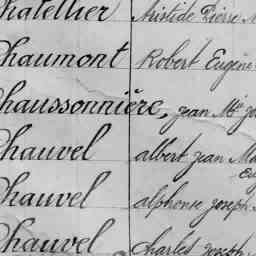 Chatellier Aristide Pierre
Chaumont Robert Eugène
Chaussonnière, jean Mie
Chauvel albert jean
Chauvel alphonse joseph
Chauvel Charles joseph